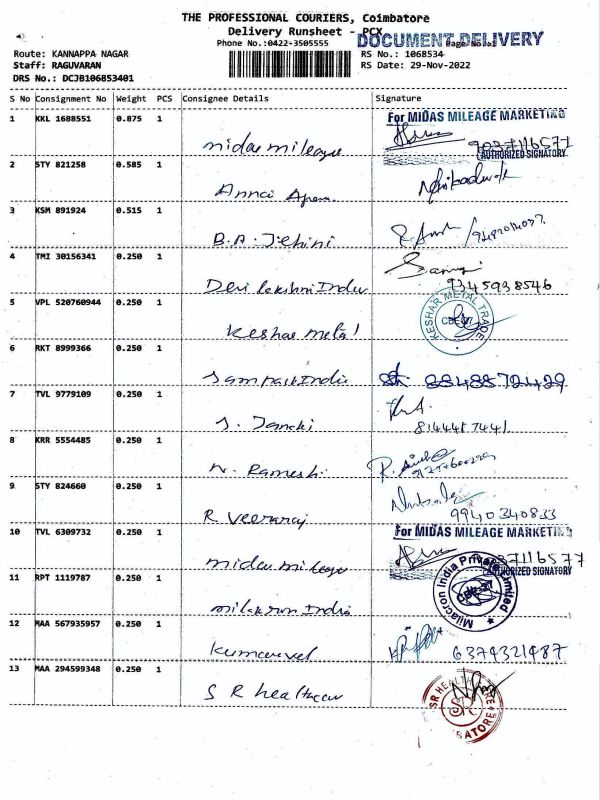 THE PROFESSIONAL COURIERS, Coimbatore
Delivery Runsheet - PCX
DOCUMENT DELIVERY
Phone No.:0422-3505555
Route: KANNAPPA NAGAR RS No.: 1068534
Staff: RAGUVARAN RS Date: 29-Nov-2022
DRS No.: DCJB106853401
S No Consignment No Weight PCS Consignee Details Signature
1 KKL 1688551 0.875 1
For MIDAS MILEAGE MARKETING
midas mileage 9037116577
AUTHORIZED SIGNATORY
2 STY 821258 0.585 1
Annai
3 KSM 891924 0.515 1
B.A. Jehini
4 TMI 30156341 0.250 1
Devi Lakshmi Indus 9345938546
5 VPL 520760944 0.250 1
KESHAR METAL TRADE
CBE-27
Keshar metal
6 RKT 8999366 0.250 1
8848872429
7 TVL 9779109 0.250 1
S. Janaki 8144417441
8 KRR 5554485 0.250 1
N. Ramesh
9 STY 824660 0.250 1
R Veeraraj 9940340833
10 TVL 6309732 0.250 1
For MIDAS MILEAGE MARKETING
midas mileage 37116577
AUTHORIZED SIGNATORY
11 RPT 1119787 0.250 1
Milacron India Private Limited
milakron India
12 MAA 567935957 0.250 1
Kumaravel 6374321987
13 MAA 294599348 0.250 1
S R healthcare
SR HEALTH
SR